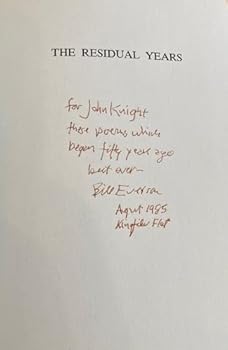 THE RESIDUAL YEARS
for John Knight
these poems which
began fifty years ago
best ever—
Bill Everson
August 1985
Kingfisher Flat